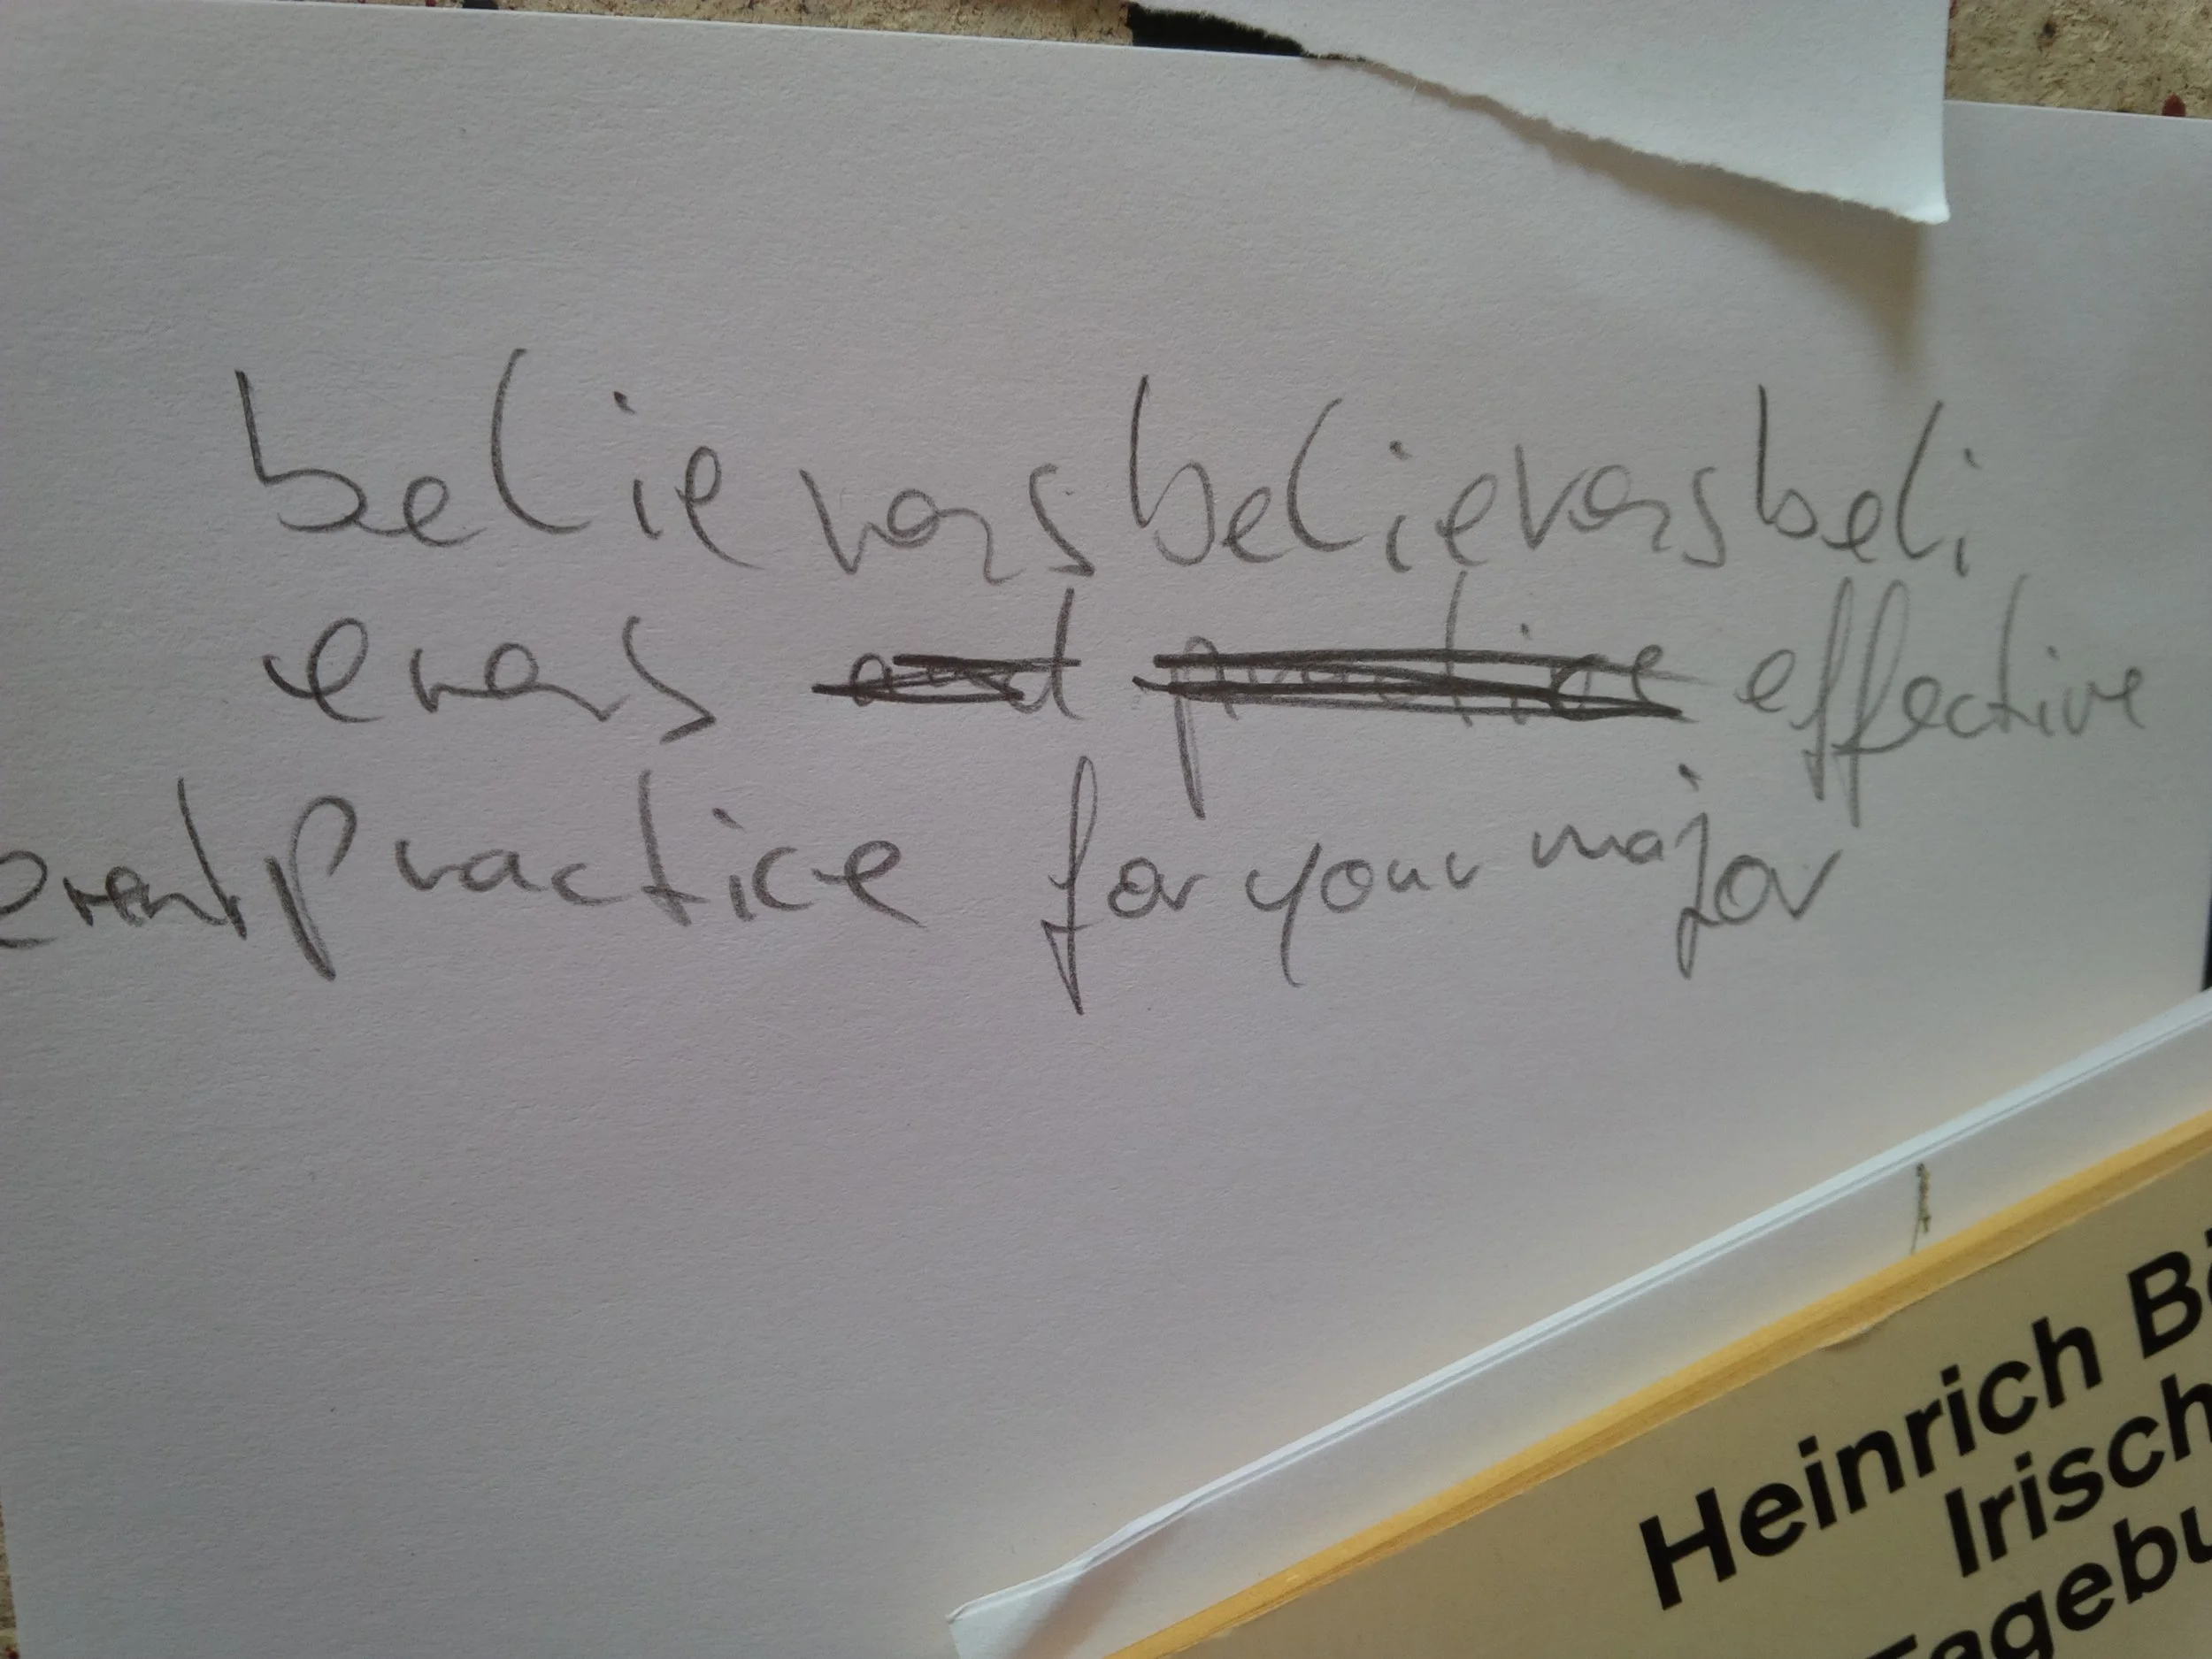 believersbelieversbeli
evers and practice effective
event practice for your major
Heinrich Bö
Irisch
Tagebu